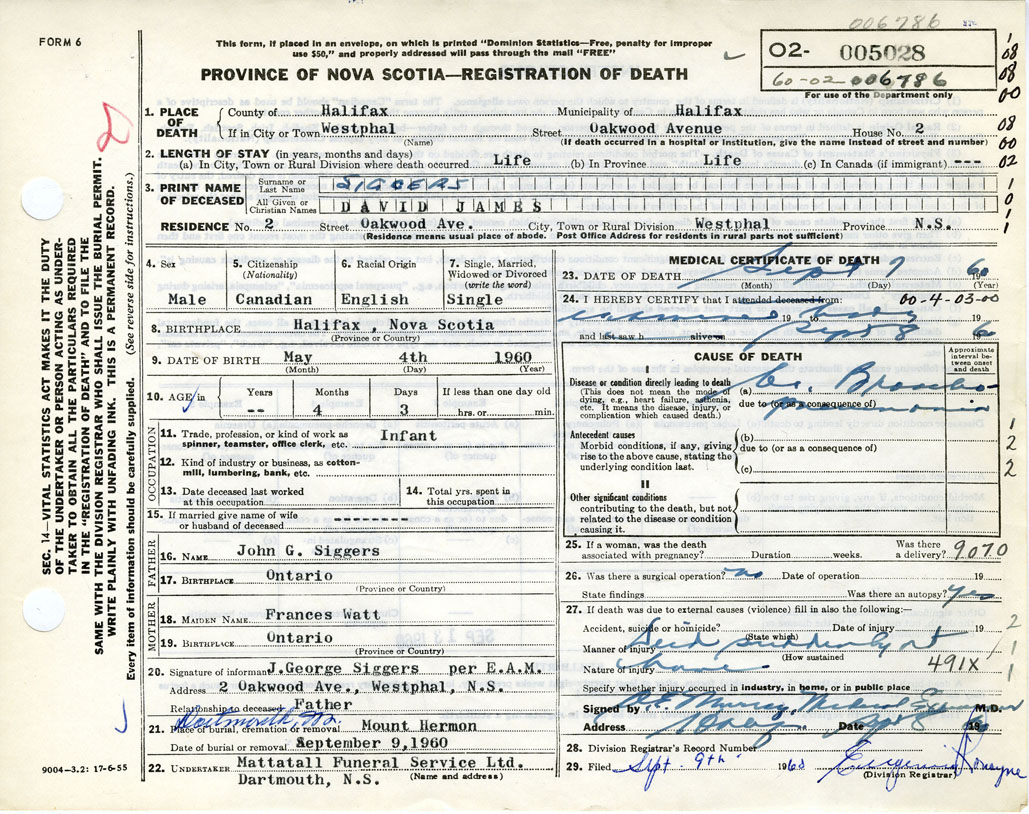 006786
FORM 6
This form, if placed in an envelope, on which is printed "Dominion Statistics—Free, penalty for improper
use $50," and properly addressed will pass through the mail "FREE"
O2- 005028
60-02 006786
For use of the Department only
PROVINCE OF NOVA SCOTIA—REGISTRATION OF DEATH
1
08
08
00
08
00
02
1
0
1
1. PLACE OF DEATH County of Halifax Municipality of Halifax
If in City or Town Westphal Street Oakwood Avenue House No. 2
(Name) (If death occurred in a hospital or institution, give the name instead of street and number)
2. LENGTH OF STAY (in years, months and days)
(a) In City, Town or Rural Division where death occurred Life (b) In Province Life (c) In Canada (if immigrant) ---
3. PRINT NAME OF DECEASED Surname or Last Name SIGGERS
All Given or Christian Names DAVID JAMES
RESIDENCE No. 2 Street Oakwood Ave. City, Town or Rural Division Westphal Province N.S.
(Residence means usual place of abode. Post Office Address for residents in rural parts not sufficient)
4. Sex 5. Citizenship 6. Racial Origin 7. Single, Married,
(Nationality) Widowed or Divorced
(write the word)
Male Canadian English Single
8. BIRTHPLACE Halifax , Nova Scotia
(Province or Country)
9. DATE OF BIRTH May 4th 1960
(Month) (Day) (Year)
10. AGE in Years Months Days If less than one day old
-- 4 3 hrs. or min.
OCCUPATION
11. Trade, profession, or kind of work as Infant
spinner, teamster, office clerk, etc.
12. Kind of industry or business, as cotton-
mill, lumbering, bank, etc.
13. Date deceased last worked at this occupation 14. Total yrs. spent in this occupation
15. If married give name of wife
or husband of deceased --------
FATHER
16. NAME John G. Siggers
17. BIRTHPLACE Ontario
(Province or Country)
MOTHER
18. MAIDEN NAME Frances Watt
19. BIRTHPLACE Ontario
(Province or Country)
20. Signature of informant J.George Siggers per E.A.M.
Address 2 Oakwood Ave., Westphal, N.S.
Relationship to deceased Father
Dartmouth, N.S.
21. Place of burial, cremation or removal Mount Hermon
Date of burial or removal September 9,1960
22. UNDERTAKER Mattatall Funeral Service Ltd.
Dartmouth, N.S. (Name and address)
MEDICAL CERTIFICATE OF DEATH
23. DATE OF DEATH Sept 7 1960
(Month) (Day) (Year)
24. I HEREBY CERTIFY that I attended deceased from: 00-4-03-00
examined body 19 19
and last saw h alive on Sept 8 1960
CAUSE OF DEATH
Approximate interval between onset and death
I
Disease or condition directly leading to death (a) Broncho-
(This does not mean the mode of due to (or as consequence of) pneumonia
dying, e.g., heart failure, asthenia,
etc. It means the disease, injury, or
complication which caused death.)
Antecedent causes (b)
Morbid conditions, if any, giving due to (or as a consequence of)
rise to the above cause, stating the
underlying condition last. (c)
1
2
2
II
Other significant conditions
contributing to the death, but not
related to the disease or condition
causing it.
25. If a woman, was the death Was there
associated with pregnancy? Duration weeks. a delivery? 9070
26. Was there a surgical operation? no Date of operation 19
State findings Was there an autopsy? yes
27. If death was due to external causes (violence) fill in also the following:—
Accident, suicide or homicide? Date of injury 19 2
(State which)
Manner of injury Died suddenly at 1
(How sustained
Nature of injury home. 491X 1
Specify whether injury occurred in industry, in home, or in public place
Signed by Murray, Medical Examiner M.D.
Address Date Sept 8 1960
28. Division Registrar's Record Number
29. Filed Sept. 9th 1960
(Division Registrar)
9004-3.2: 17-6-55
SEC. 14—VITAL STATISTICS ACT MAKES IT THE DUTY
OF THE UNDERTAKER OR PERSON ACTING AS UNDER-
TAKER TO OBTAIN ALL THE PARTICULARS REQUIRED
IN THE "REGISTRATION OF DEATH" AND TO FILE THE
SAME WITH THE DIVISION REGISTRAR WHO SHALL ISSUE THE BURIAL PERMIT.
WRITE PLAINLY WITH UNFADING INK. THIS IS A PERMANENT RECORD.
Every item of information should be carefully supplied. (See reverse side for instructions.)